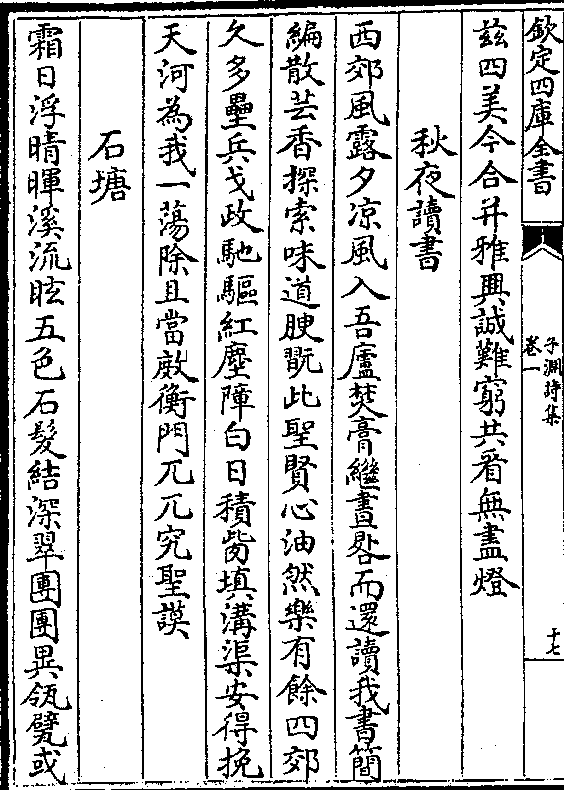 欽定四庫全書
子淵詩集
卷一
十七
茲四美今合并雅興誠難窮共看無盡燈
秋夜讀書
西郊風露夕凉風入吾廬焚膏繼晝晷而還讀我書簡
編散芸香探索味道腴翫此聖賢心油然樂有餘四郊
久多壘兵戈政馳驅紅塵障白日積胔填溝渠安得挽
天河為我一蕩除且當敞衡門兀兀究聖謨
石塘
霜日浮晴暉溪流眩五色石髮結深翠團團異瓴甓或